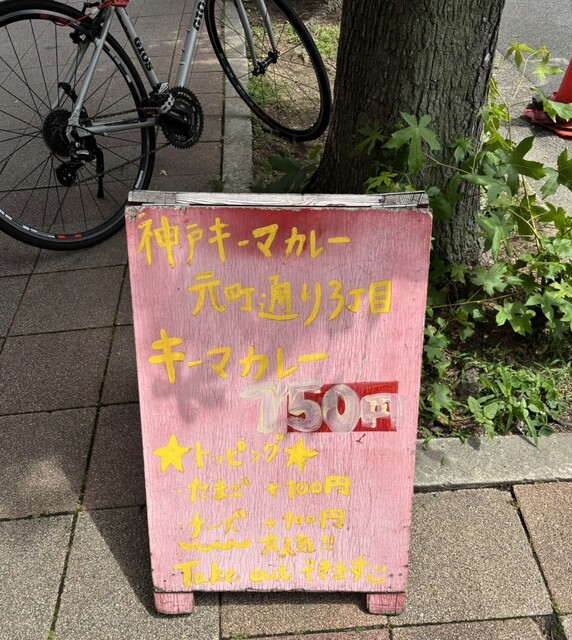 GIOS
GIOS
神戸キーマカレー
元町通り3丁目
キーマカレー
750円
★トッピング★
・たまご +100円
・チーズ +100円
大人気!!
Take out できます